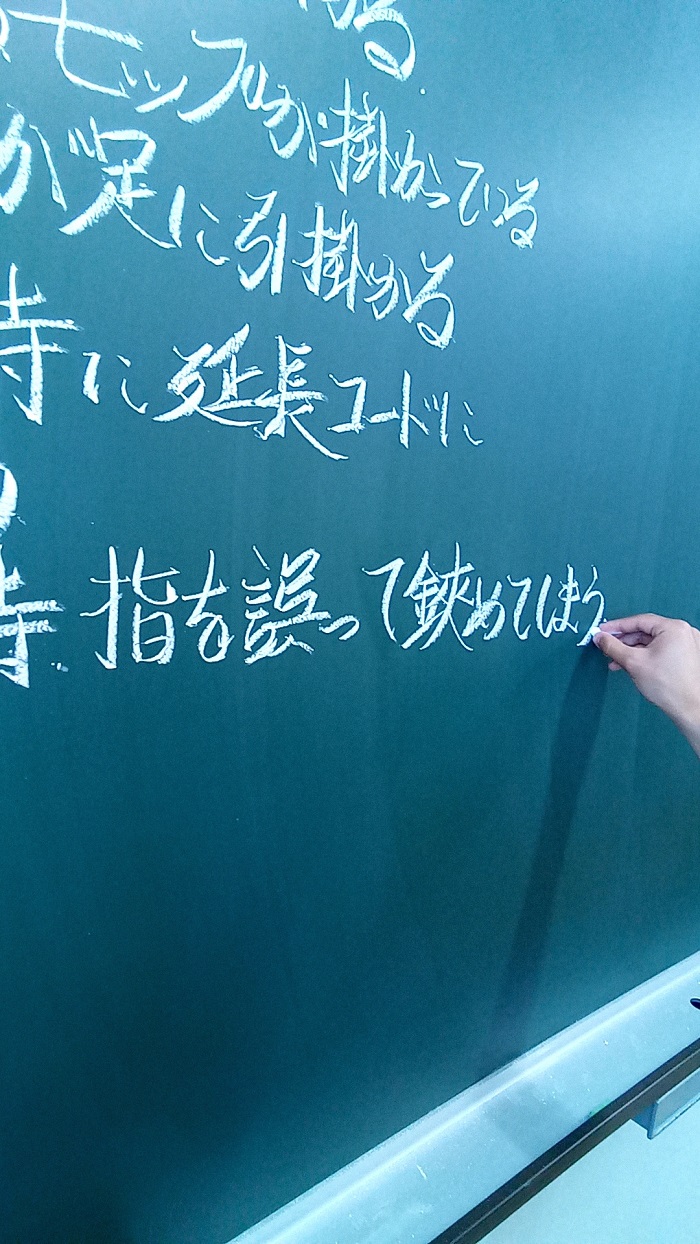 る.
セップルが掛かっている
が足に引掛かる
寺に延長コードに
寺. 指を誤って鋏めてしまう